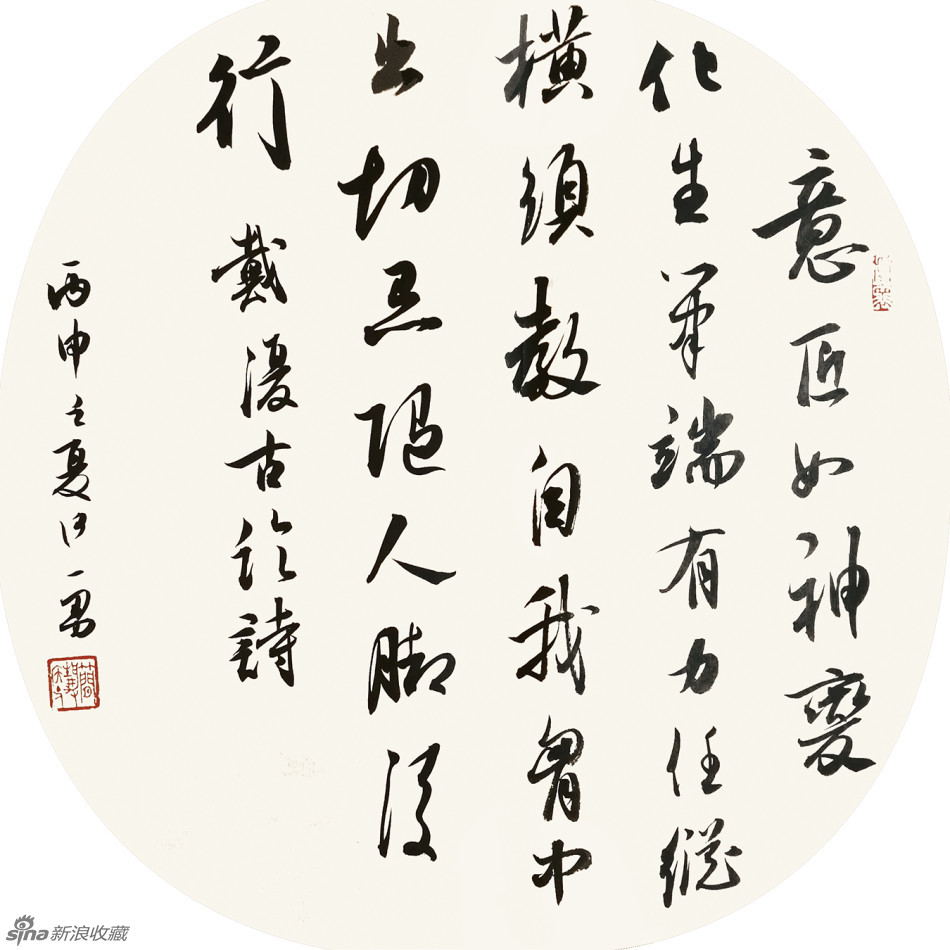 意匠如神變
化生筆端有力任縱
横須教自我胷中
出切忌随人脚後
行 戴復古論詩
丙申之夏
sina新浪收藏